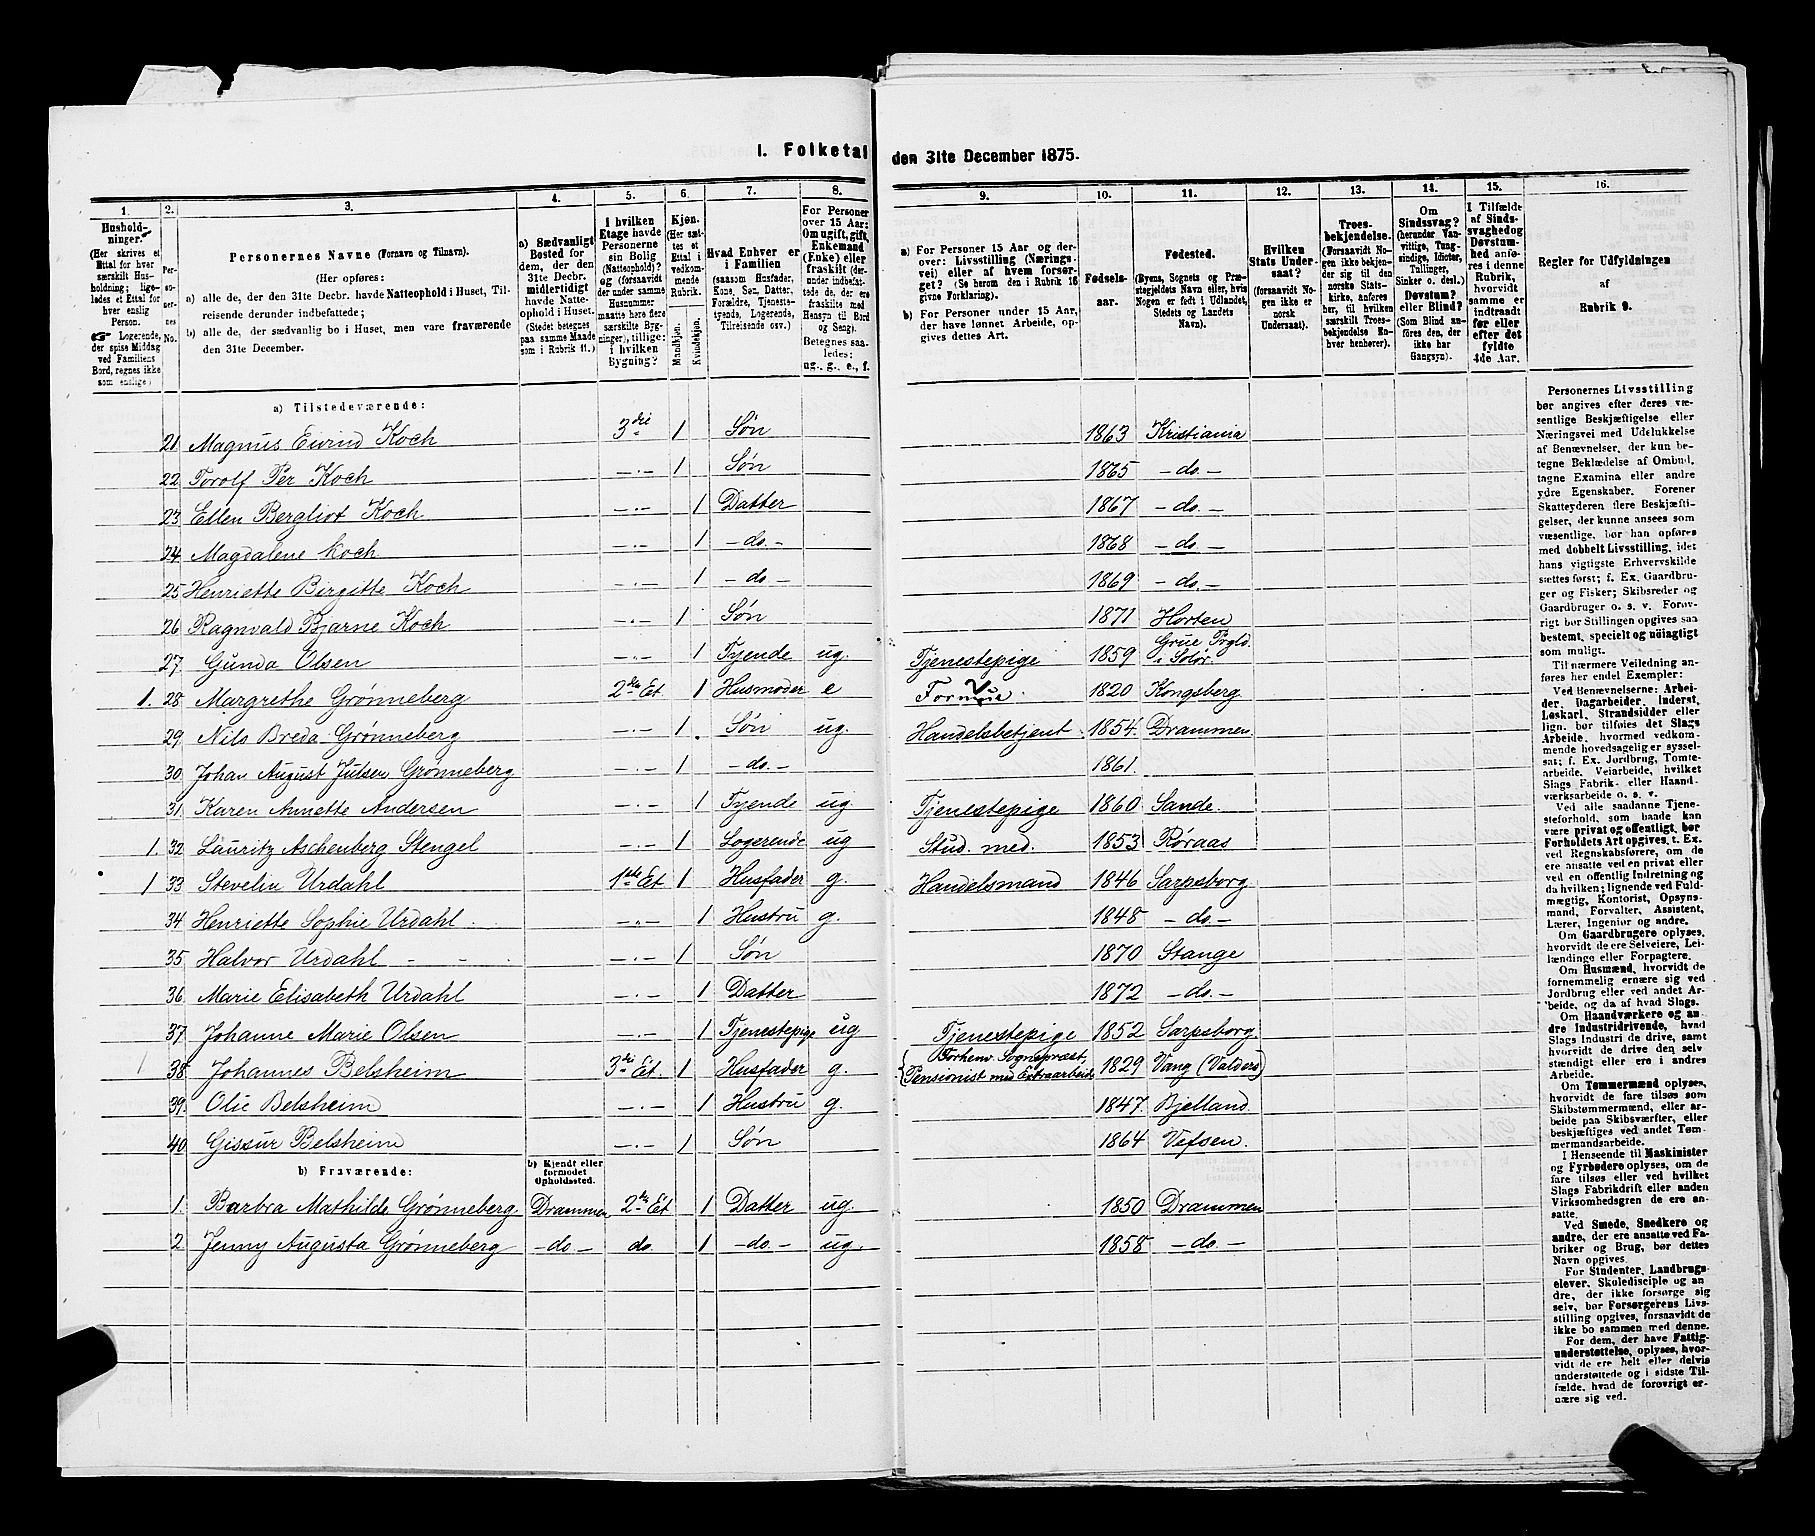 I. Folketal den 31te December 1875.
1. 2. 3. 4. 5. 6. 7. 8. 9. 10. 11. 12. 13. 14. 15. 16.
Husholdninger.
(Her skrives et Ettal for hver særskilt Husholdning; ligeledes et Ettal for hver enslig Person.
☞ Logerende, der spise Middag ved Familiens Bord, regnes ikke som enslige.)
Personernes No.
Personernes Navne (Fornavn og Tilnavn).
(Her opføres:
a) alle de, der den 31te Decbr. havde Natteophold i Huset, Tilreisende derunder indbefattede;
b) alle de, der sædvanlig bo i Huset, men vare fraværende den 31te December.
a) Sædvanligt Bosted for dem, der den 31te Decbr. midlertidigt havde Natteophold i Huset. (Stedet betegnes paa samme Maade som i Rubrik 11.)
I hvilken Etage havde Personerne sin Bolig (Natteophold)? og (forsaavidt der under samme Husnummer maatte høre flere særskilte Bygninger), tillige: i hvilken Bygning?
Kjøn. (Her sættes et Ettal i vedkommende Rubrik.
Mandkjøn. Kvindekjøn.
Hvad Enhver er i Familien (saasom Husfader, Kone, Søn, Datter, Forældre, Tjenestetyende, Logerende, Tilreisende osv.)
For Personer over 15 Aar: Om ugift, gift, Enkemand (Enke) eller fraskilt (derunder indbefattede de, der ere fraskilte med Hensyn til Bord og Seng). Betegnes saaledes: ug., g., e., f.
a) For Personer 15 Aar og derover: Livsstilling (Næringsvei) eller af hvem forsørget? (Se herom den i Rubrik 16 givne Forklaring).
b) For Personer under 15 Aar, der have lønnet Arbeide, opgives dettes Art.
Fødselsaar.
Fødested. (Byens, Sognets og Præstegjeldets Navn eller, hvis Nogen er født i Udlandet, Stedets og Landets Navn).
Hvilken Stats Undersaat? (forsaavidt Nogen ikke er norsk Undersaat).
Troesbekjendelse. (Forsaavidt Nogen ikke bekjender sig til den norske Statskirke, anføres her, til hvilken særskilt Troesbekjendelse Enhver henhører).
Om Sindssvag? (herunder Vanvittige, Tungsindige, Idioter, Tullinger, Sinker o. desl.) Døvstum? eller Blind? (Som Blind anføres den, der ikke har Gangsyn).
I Tilfælde af Sindssvaghed og Døvstumhed anføres i denne Rubrik, hvorvidt samme er indtraadt før eller efter det fyldte 4de Aar.
Regler for Udfyldningen af Rubrik 9.
a) Tilstedeværende:
21 Magnus Eivind Koch 3die 1 Søn 1863 Kristiania
22 Torolf Per Koch —„— 1 Søn 1865 —do.—
23 Ellen Bergliot Koch —„— 1 Datter 1867 —do.—
24 Magdalene Koch —„— 1 —do.— 1868 —do.—
25 Henriette Birgitte Koch —„— 1 —do— 1869 —do.—
26 Ragnvald Bjarne Koch —„— 1 Søn 1871 Horten
27 Gunda Olsen —„— 1 Tyende ug. Tjenestepige 1859 Grue Prgld. i Solør
1. 28 Margrethe Grønneberg 2den Et. 1 Husmoder e Formue 1820 Kongsberg
29 Nils Breda Grønneberg —„— 1 Søn ug. Handelsbetjent 1854. Drammen
30 Johan August Julsen Grønneberg —„— 1 —do.— 1861.
31 Karen Annette Andersen —„— 1 Tyende ug Tjenestepige 1860 Sande.
1. 32 Lauritz Aschenberg Stengel —„— 1 Logerende ug Stud. med. 1853 Røraas
1 33 Stevelin Urdahl 1ste Et 1 Husfader g. Handelsmand 1846 Sarpsborg
34 Henriette Sophie Urdahl —„— 1 Hustru g. 1848 —do.—
35 Halvor Urdahl —„— 1 Søn 1870 Stange
36 Marie Elisabeth Urdahl —„— 1 Datter 1872 —do.—
37 Johanne Marie Olsen —„— 1 Tjenestepige ug Tjenestepige 1852 Sarpsborg
1 38 Johannes Belsheim 3die Et. 1 Husfader g. Forhenv. Sognepræst, Pensionist med Extraarbeide 1829 Vang (Valders)
39. Olie Belsheim —„— 1 Hustru g. 1847. Bjelland.
40 Gissur Belsheim —„— 1 Søn 1864 Vefsen.
b) Fraværende: b) Kjendt eller formodet Opholdssted.
1. Barbra Mathilde Grønneberg Drammen 2den Et 1 Datter ug. 1850 Drammen
2 Jenny Augusta Grønneberg —do— do. 1 —do.— ug. 1858 —do.—
Personernes Livsstilling
bør angives efter deres væ-
sentlige Beskjæftigelse eller
Næringsvei med Udelukkelse
af Benævnelser, der kun be-
tegne Beklædelse af Ombud,
tagne Examina eller andre
ydre Egenskaber. Forener
Skatteyderen flere Beskjæfti-
gelser, der kunne ansees som
væsentlige, bør han opføres
med dobbelt Livsstilling, idet
hans vigtigste Erhvervskilde
sættes først; f. Ex. Gaardbru-
ger og Fisker; Skibsreder og
Gaardbruger o. s. v. Forøv-
rigt bør Stillingen opgives saa
bestemt, specielt og nøiagtigt
som muligt.
Til nærmere Veiledning an-
føres her endel Exempler:
Ved Benævnelserne: Arbei-
der, Dagarbeider, Inderst,
Løskarl, Strandsidder eller
lign. bør tilføies det Slags
Arbeide, hvormed vedkom-
mende hovedsagelig er syssel-
sat; f. Ex. Jordbrug, Tomte-
arbeide, Veiarbeide, hvilket
Slags Fabrik- eller Haand-
værksarbeide o. s. v.
Ved alle saadanne Tjene-
steforhold, som baade kan
være privat og offentligt, bør
Forholdets Art opgives, t. Ex.
ved Regnskabsførere, om de
ere ansatte ved en privat eller
ved en offentlig Indretning og
da hvilken; lignende ved Fuld-
mægtig, Kontorist, Opsyns-
mand, Forvalter, Assistent,
Lærer, Ingeniør og andre.
Om Gaardbrugere oplyses,
hvorvidt de ere Selveiere, Lei-
lændinge eller Forpagtere.
Om Husmænd, hvorvidt de
fornemmelig ernære sig ved
Jordbrug eller ved andet Ar-
beide, og da af hvad Slags.
Om Haandværkere og an-
dre Industridrivende, hvad
Slags Industri de drive, samt
hvorvidt de drive den selv-
stændigt eller ere i andres
Arbeide.
Om Tømmermænd oplyses,
hvorvidt de fare tilsøs som
Skibstømmermænd, eller ar-
beide paa Skibsværfter, eller
beskjæftiges ved andet Tøm-
mermandsarbeide.
I Henseende til Maskinister
og Fyrbødere oplyses, om de
fare tilsøs eller ved hvilket
Slags Fabrikdrift eller anden
Virksomhedsgren de ere an-
satte.
Ved Smede, Snedkere og
andre, der ere ansatte ved Fa-
briker og Brug, bør dettes
Navn opgives.
For Studenter, Landbrugs-
elever, Skoledisciple og an-
dre, der ikke forsørge sig
selv, bør Forsørgerens Livs-
stilling opgives, forsaavidt de
ikke bo sammen med denne.
For dem, der have Fattig-
understøttelse, oplyses, hvor-
vidt de ere helt eller delvis
understøttede og i sidste Til-
fælde, hvad de forøvrigt er-
nære sig ved.